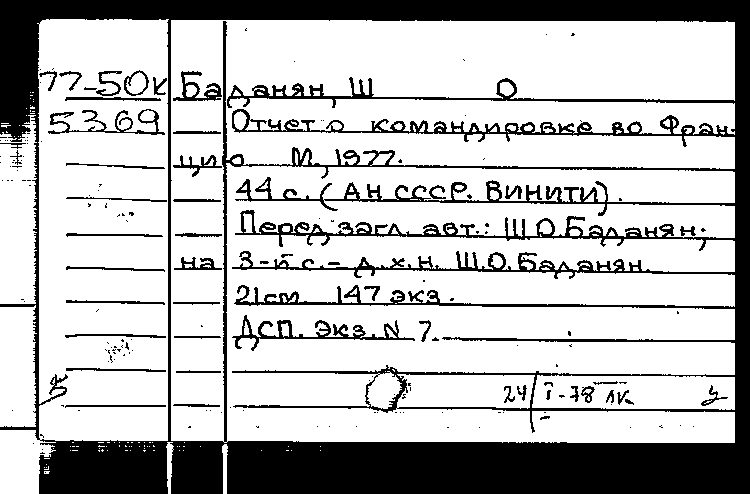 77-50к Баданян, Ш О
5369 Отчет о командировке во Фран-
цию М., 1977.
44 с. (АН СССР. ВИНИТИ).
Перед загл. авт.: Ш.О.Баданян;
на 3-й с. – д.х.н. Ш.О.Баданян.
21см 147 экз.
ДСП. Экз. N 7.
24/I-78 ЛК